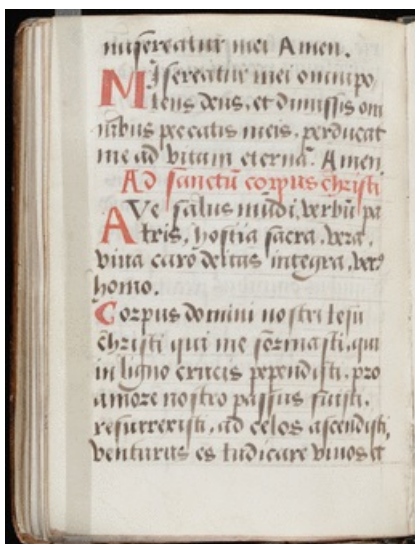 misereatur mei Amen.
Misereatur mei omnipo
tens deus, et dimissis om
nibus peccatis meis. perducat
me ad vitam eternā. Amen
Ad sanctū corpus christi
AVe salus mūdi, verbū pa
tris, hostia sacra. vera.
viva caro deitas integra, ver9
homo.
Corpus domini nostri iesu
christi qui me formasti. qui
in ligno crucis pependisti. pro
amore nostro passus fuisti,
resurrexisti, ad celos ascendisti,
venturus es iudicare vivos et